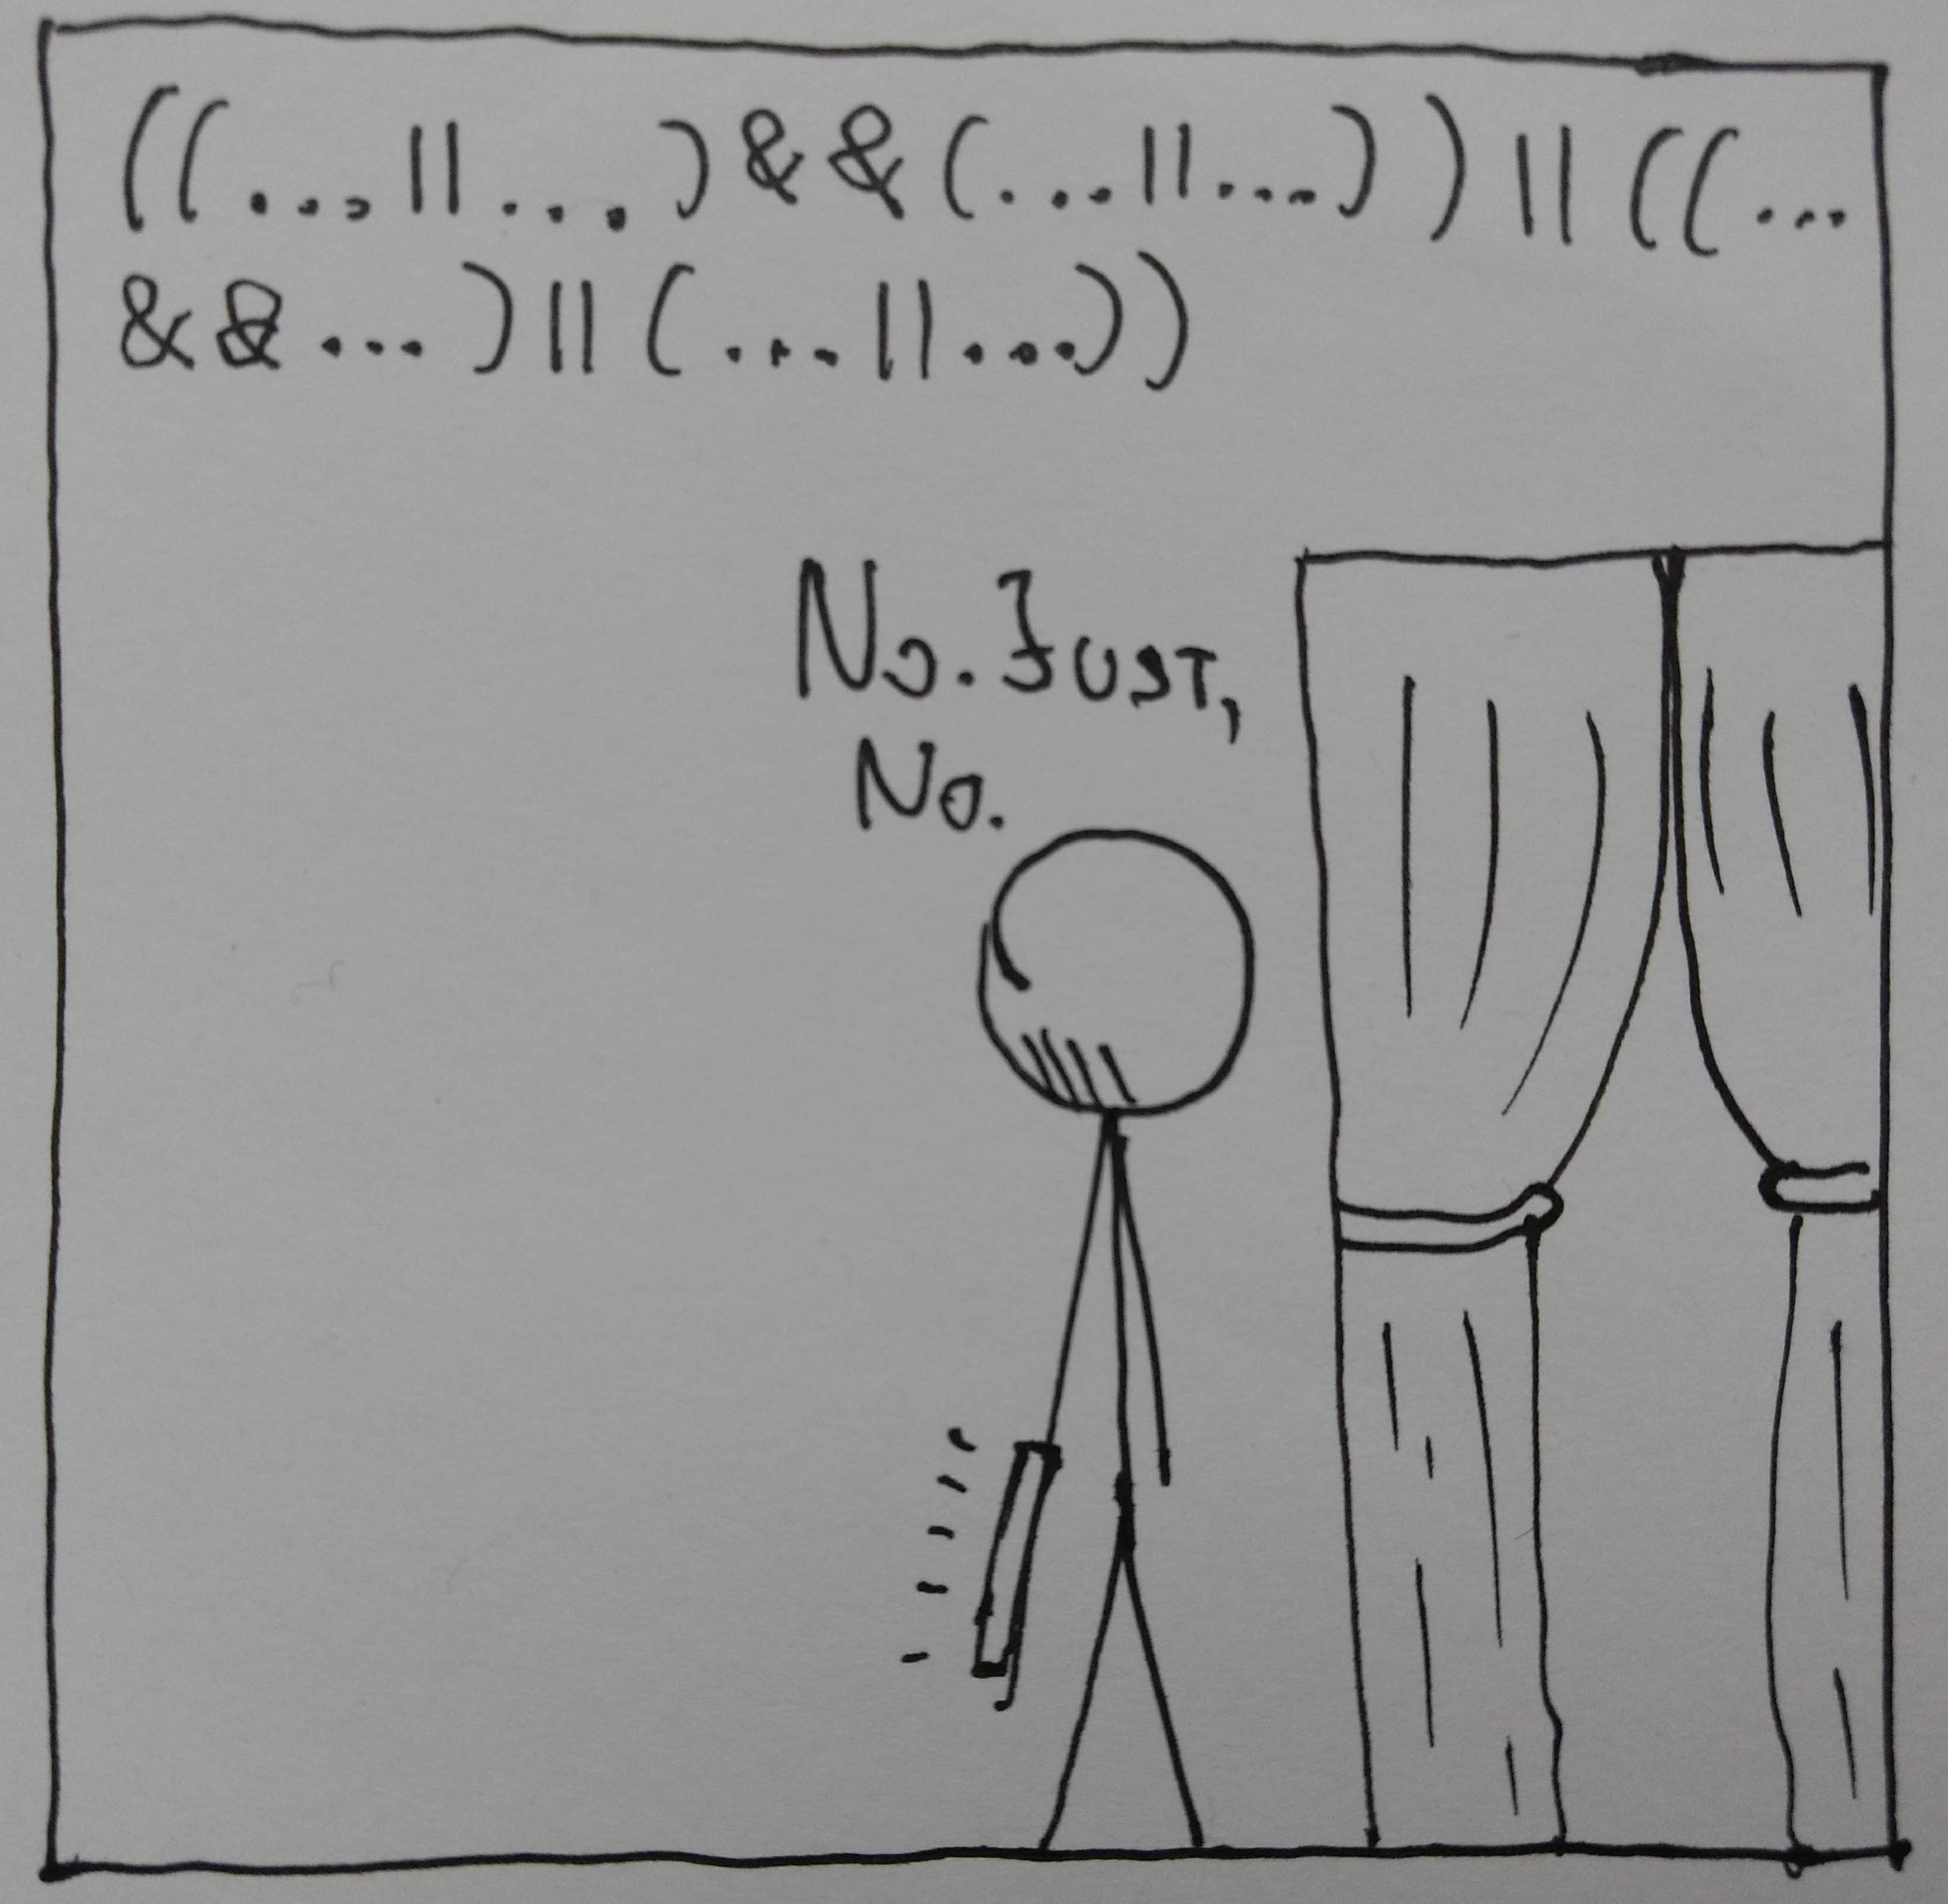 ((...||...)&&(...||...))||((...
&&...)||(...||...))
No. Just,
No.